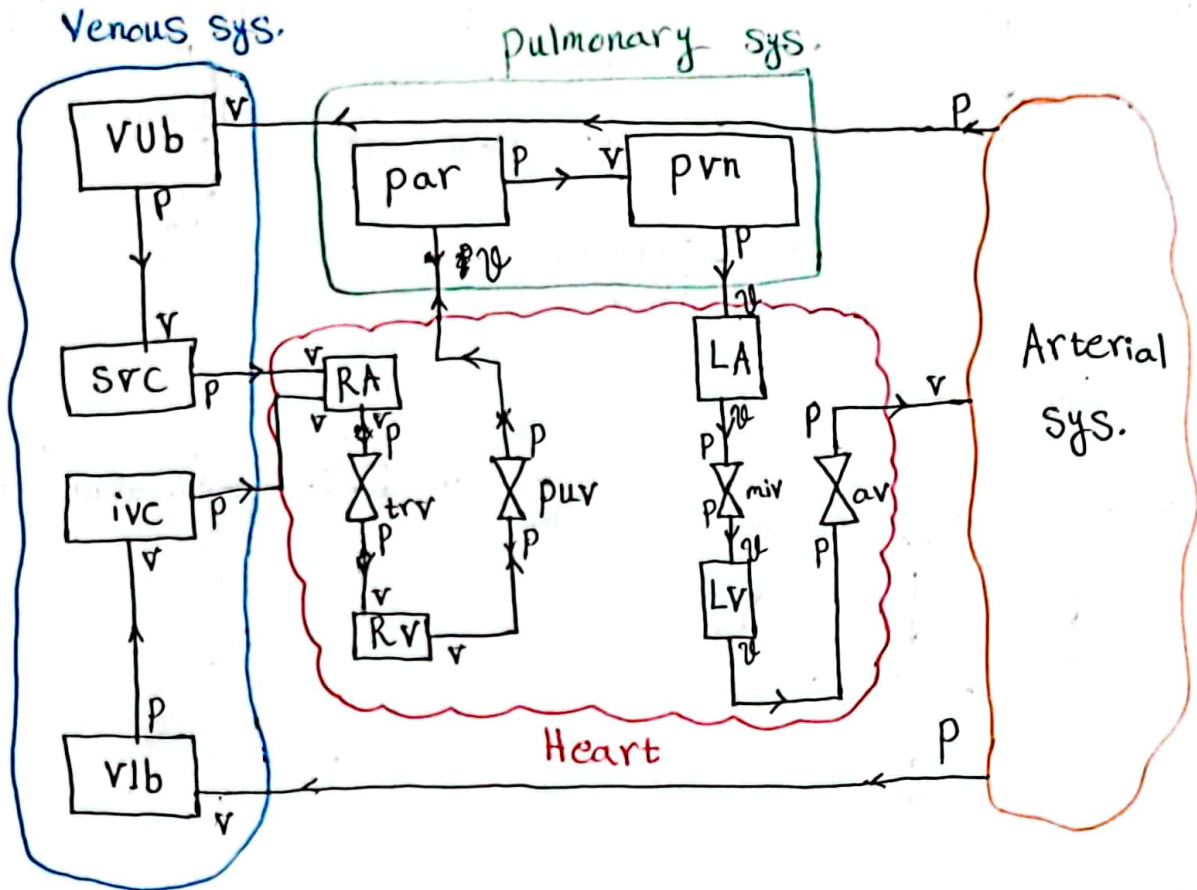 Venous sys.
Pulmonary sys.
VUb
V
P
par
P
V
pvn
P
P
v
P
v
V
svc
P
V
RA
V
V
P
trv
P
V
RV
V
P
puv
P
LA
v
P
miv
P
v
LV
v
P
av
P
V
Arterial
sys.
ivc
P
V
P
Vlb
V
P
Heart